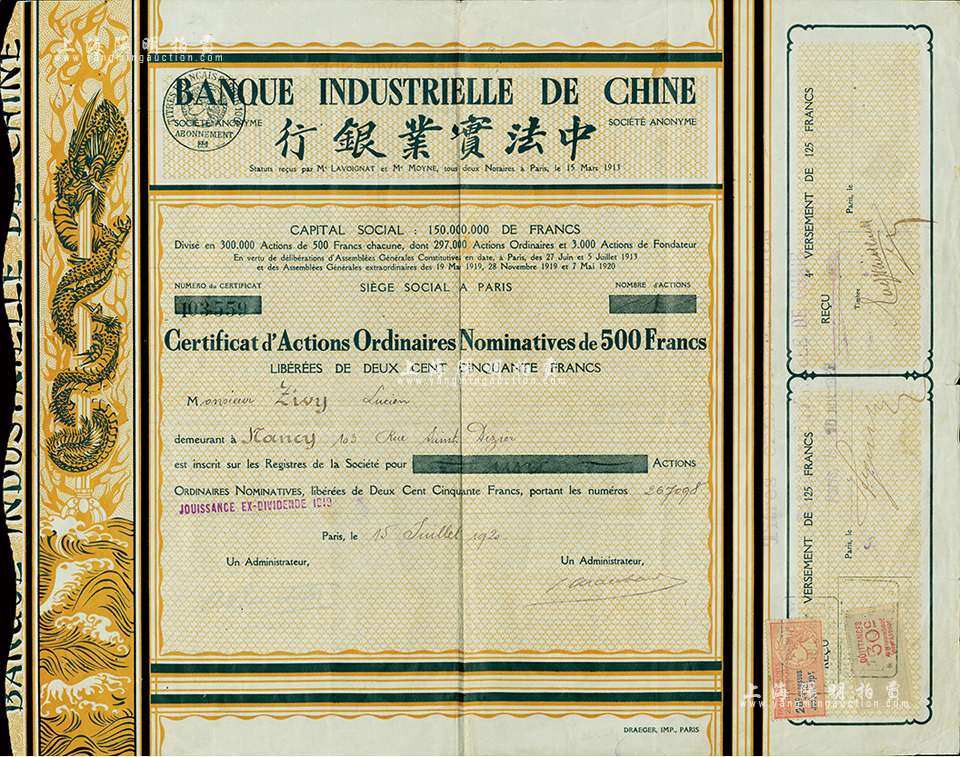 BANQUE INDUSTRIELLE DE CHINE
BANQUE INDUSTRIELLE DE CHINE
SOCIÉTÉ ANONYME
SOCIÉTÉ ANONYME
ABONNEMENT
行銀業實法中
Statuts reçus par Mᵉ LAVOIGNAT et Mᵉ MOYNE, tous deux Notaires à Paris, le 15 Mars 1913
CAPITAL SOCIAL : 150.000.000 DE FRANCS
Divisé en 300.000 Actions de 500 Francs chacune, dont 297.000 Actions Ordinaires et 3.000 Actions de Fondateur
En vertu de délibérations d'Assemblées Générales Constitutives en date, à Paris, des 27 Juin et 5 Juillet 1913
et des Assemblées Générales extraordinaires des 19 Mai 1919, 28 Novembre 1919 et 7 Mai 1920
NUMÉRO DU CERTIFICAT
SIÈGE SOCIAL A PARIS
NOMBRE D'ACTIONS
103559
1
Certificat d'Actions Ordinaires Nominatives de 500 Francs
LIBÉRÉES DE DEUX CENT CINQUANTE FRANCS
Monsieur Zivy Lucien
demeurant à Nancy 103 Rue Saint Dizier
est inscrit sur les Registres de la Société pour une ACTIONS
ORDINAIRES NOMINATIVES, libérées de Deux Cent Cinquante Francs, portant les numéros 267098
JOUISSANCE EX-DIVIDENDE 1919
Paris, le 15 Juillet 1920
Un Administrateur,
Un Administrateur,
DRAEGER, IMP., PARIS
4ᵉ VERSEMENT DE 125 FRANCS
REÇU
Paris, le
Timbre
VERSEMENT DE 125 FRANCS
REÇU
Paris, le
QUITTANCES
30
上海陽明拍賣
www.yangmingauction.com
上海陽明拍賣
www.yangmingauction.com
上海陽明拍賣
www.yangmingauction.com